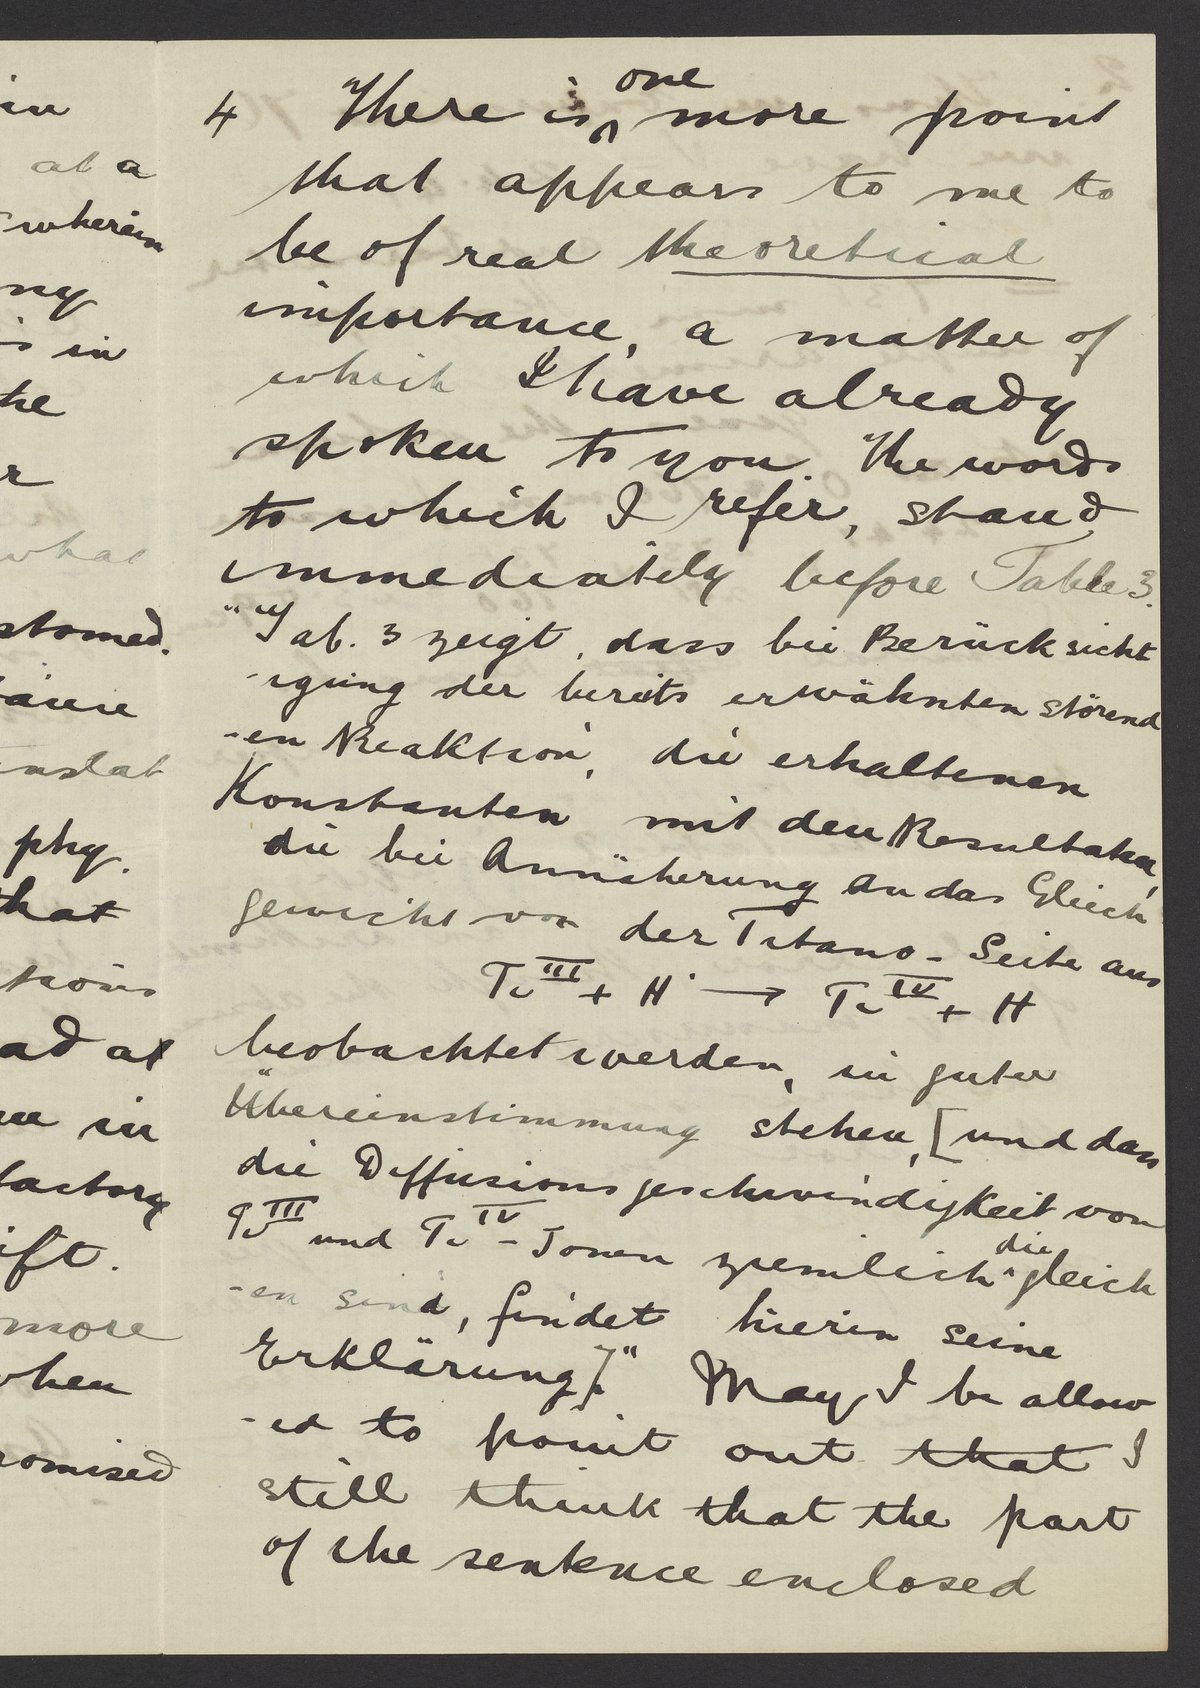 in
at a
wherein
ny
is in
he
r
what
stomed.
enslat
phy.
that
ad at
in
factory
ift.
more
when
romised
4 There is one more point
that appears to me to
be of real theoretical
importance, a matter of
which I have already
spoken to you. The words
to which I refer, stand
immediately before Table 3.
"Tab. 3 zeigt, dass bei Berücksicht
-igung der bereits erwähnten störend
-en Reaktion, die erhaltenen
Konstanten mit den Resultaten,
die bei Annäherung an das Gleich
gewicht von der Titano-Seite aus
Ti III + H· → Ti IV + H
beobachtet werden, in guter
Übereinstimmung stehen, [und dass
die Diffusionsgeschwindigkeit von
Ti III und Ti IV-Ionen ziemlich die gleich
-en sind, findet hierin seine
Erklärung]." May I be allow
-ed to point out that I
still think that the part
of the sentence enclosed